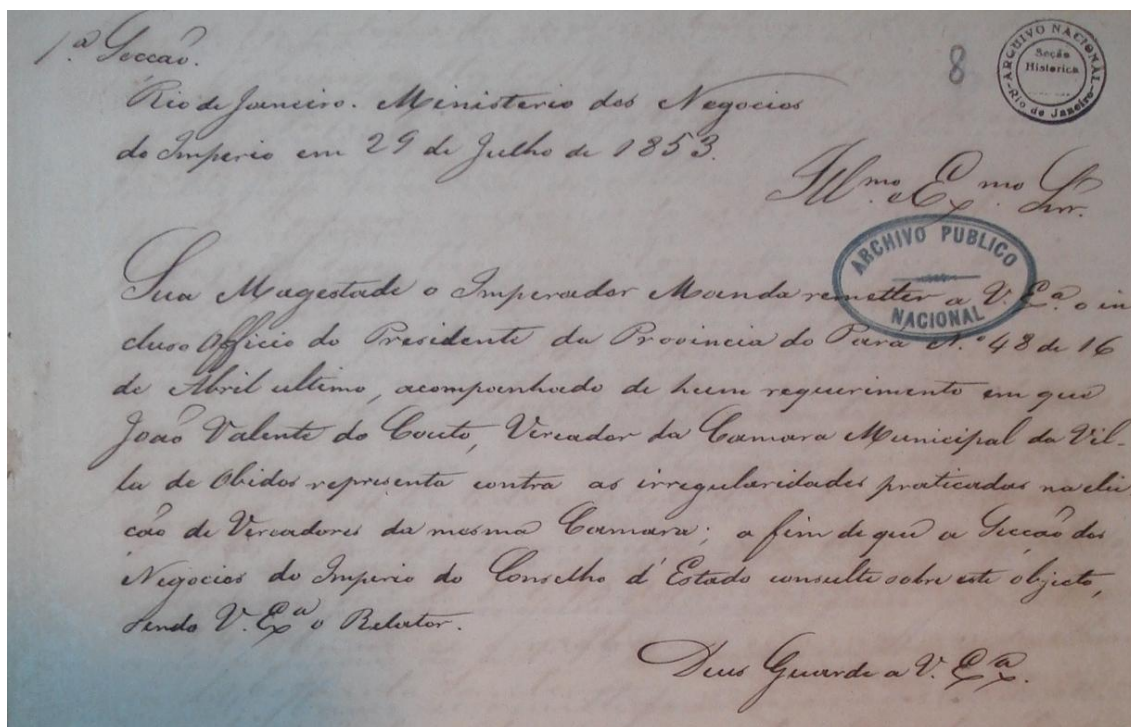 1.ª Secção.
8
ARCHIVO NACIONAL
Seção
Historica
Rio de Janeiro
Rio de Janeiro. Ministerio dos Negocios
do Imperio em 29 de Julho de 1853.
Ill.mo e Ex.mo Snr.
ARCHIVO PUBLICO
NACIONAL
Sua Magestade o Imperador Manda remetter a V. Ex.ª o in
cluso Officio do Presidente da Provincia do Pará N.º 48 de 16
de Abril ultimo, acompanhado de hum requerimento em que
João Valente do Couto, Vereador da Camara Municipal da Vil-
la de Obidos representa contra as irregularidades praticadas na elei
ção de Vereadores da mesma Camara; a fim de que a Secção dos
Negocios do Imperio do Conselho d'Estado consulte sobre este objecto,
sendo V. Ex.ª o Relator.
Deus Guarde a V. Ex.ª.